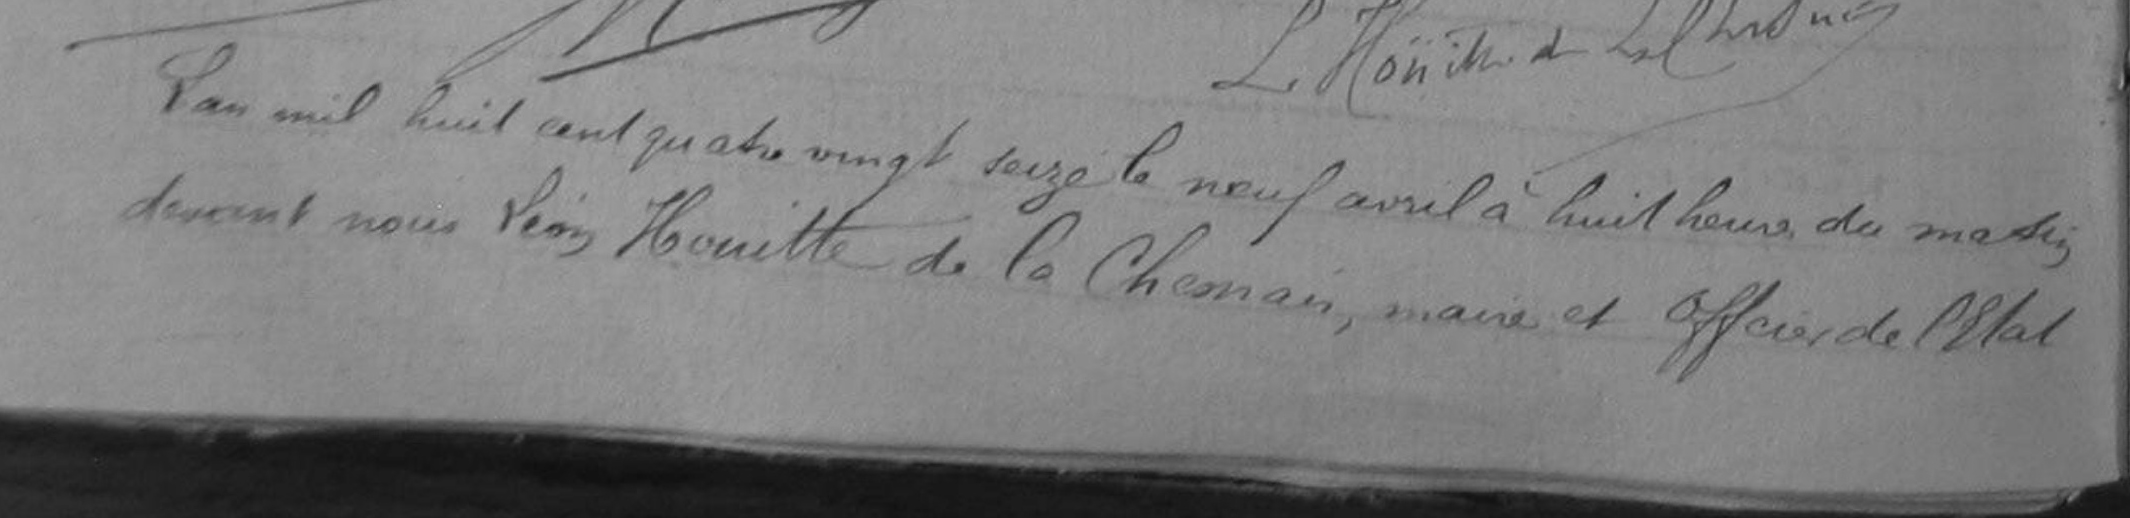 L. Hoüitte de La Chesnais
L'an mil huit cent quatre vingt seize le neuf avril à huit heures du matin
devant nous Léon Houitte de la Chesnais, maire et Officier de l'Etat